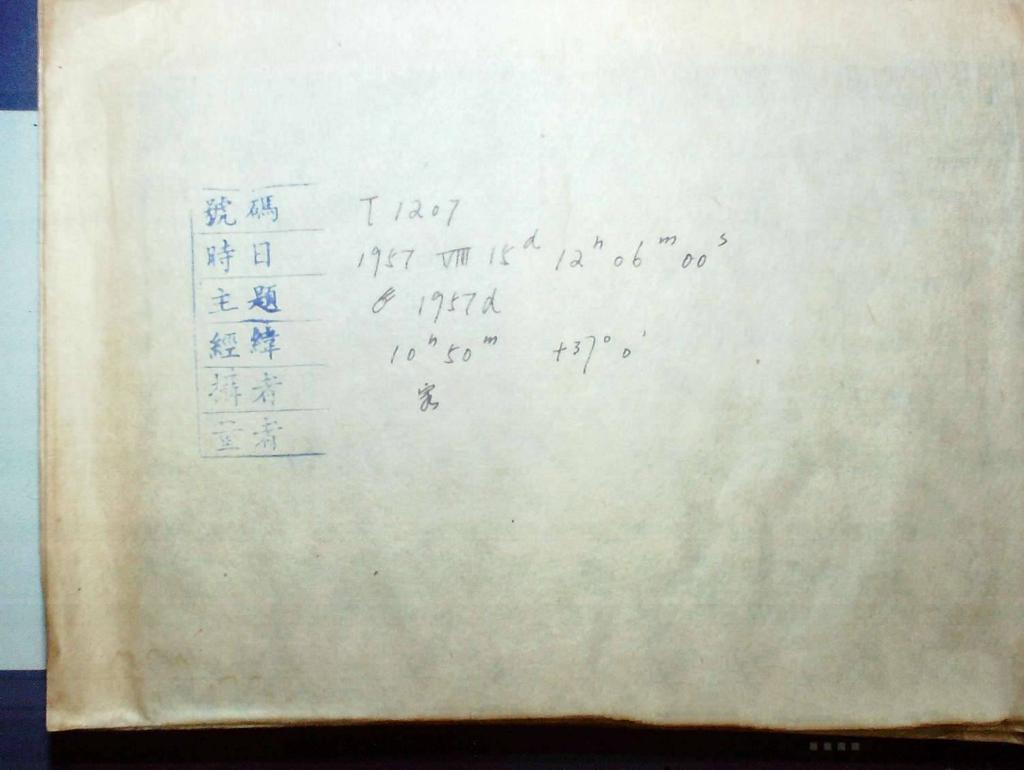 號碼 T 1207
時日 1957 VIII 15ᵈ 12ʰ 06ᵐ 00ˢ
主題 ☄ 1957d
經緯 10ʰ 50ᵐ +37° 0'
攝者
量者